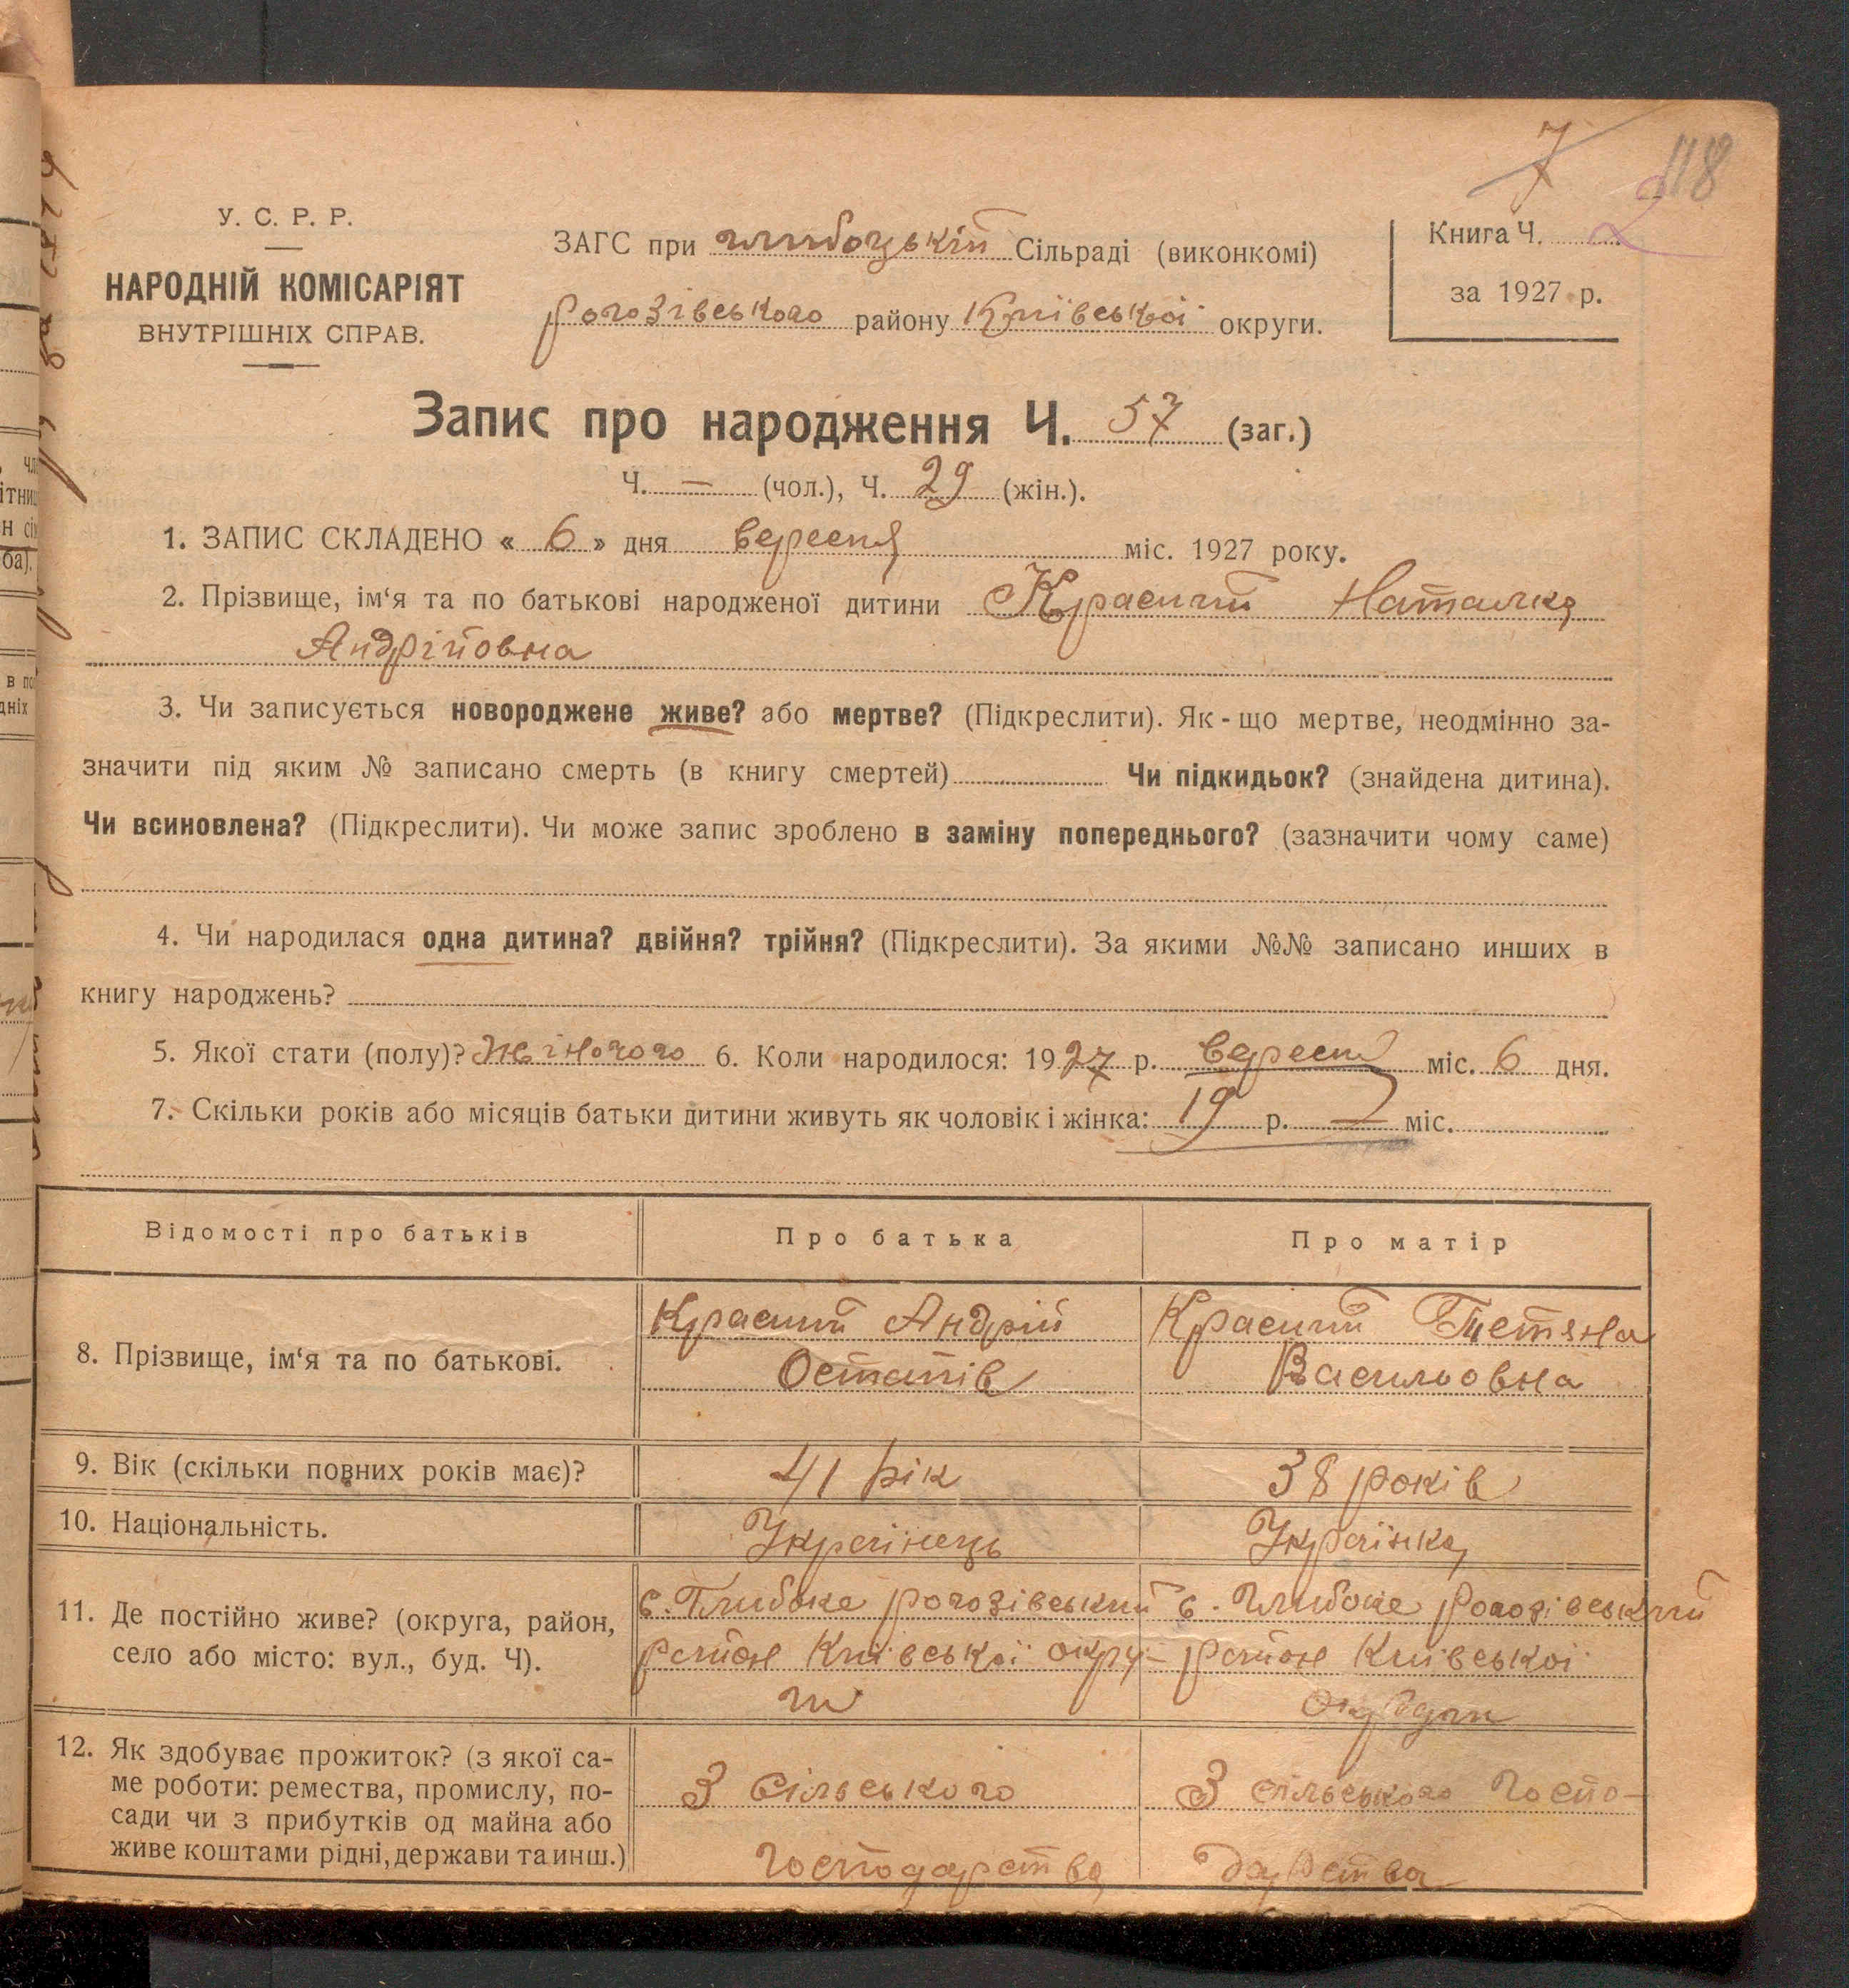 7
118
2
У. С. Р. Р.
НАРОДНІЙ КОМІСАРІЯТ
ВНУТРІШНІХ СПРАВ.
ЗАГС при глибоцькій Сільраді (виконкомі)
рогозівського району Київської округи.
Книга Ч.
за 1927 р.
Запис про народження Ч. 57 (заг.)
Ч. — (чол.), Ч. 29 (жін.).
1. ЗАПИС СКЛАДЕНО « 6 » дня вересня міс. 1927 року.
2. Прізвище, ім‘я та по батькові народженої дитини Красний Наталка
Андрійовна
3. Чи записується новороджене живе? або мертве? (Підкреслити). Як-що мертве, неодмінно за-
значити під яким № записано смерть (в книгу смертей) Чи підкидьок? (знайдена дитина).
Чи всиновлена? (Підкреслити). Чи може запис зроблено в заміну попереднього? (зазначити чому саме)
4. Чи народилася одна дитина? двійня? трійня? (Підкреслити). За якими №№ записано инших в
книгу народжень?
5. Якої стати (полу)? Жіночого 6. Коли народилося: 1927 р. вересня міс. 6 дня.
7. Скільки років або місяців батьки дитини живуть як чоловік і жінка: 19 р. — міс.
Відомості про батьків Про батька Про матір
8. Прізвище, ім‘я та по батькові.
Красний Андрій
Остапів
Красний Тетяна
Васильовна
9. Вік (скільки повних років має)? 41 рік 38 років
10. Національність. Українець Українка
11. Де постійно живе? (округа, район,
село або місто: вул., буд. Ч).
с. Глибоке рогозівський
район Київської окру-
ги
с. Глибоке рогозівський
район Київської
округи
12. Як здобуває прожиток? (з якої са-
ме роботи: ремества, промислу, по-
сади чи з прибутків од майна або
живе коштами рідні, держави та инш.)
З сільського
господарства
З сільського госпо-
дарства